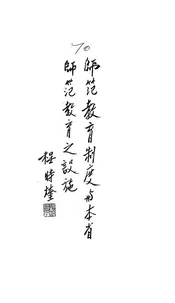 70
師范教育制度与本省
師范教育之設施
程時煃